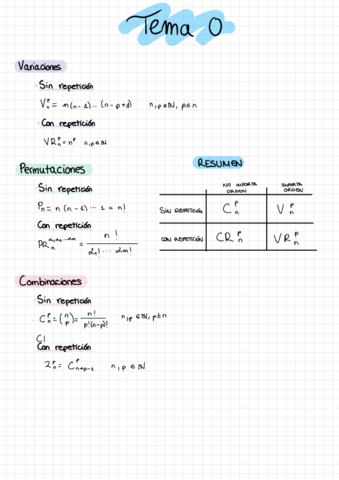 Tema 0
Variaciones
Sin repetición
V_n^p = n(n-1)...(n-p+1) n,p∈ℕ, p≤n
Con repetición
VR_n^p = n^p n,p∈ℕ
Permutaciones
Sin repetición
P_n = n(n-1)...1 = n!
Con repetición
PR_n^{α₁,α₂...αm} = n! / α₁!...αm!
RESUMEN
NO IMPORTA ORDEN
IMPORTA ORDEN
SIN REPETICIÓN C_n^p V_n^p
CON REPETICIÓN CR_n^p VR_n^p
Combinaciones
Sin repetición
C_n^p = (n p) = n! / p!(n-p)! n,p∈ℕ, p≤n
Con repetición
= C_{n+p-1}^p n,p∈ℕ